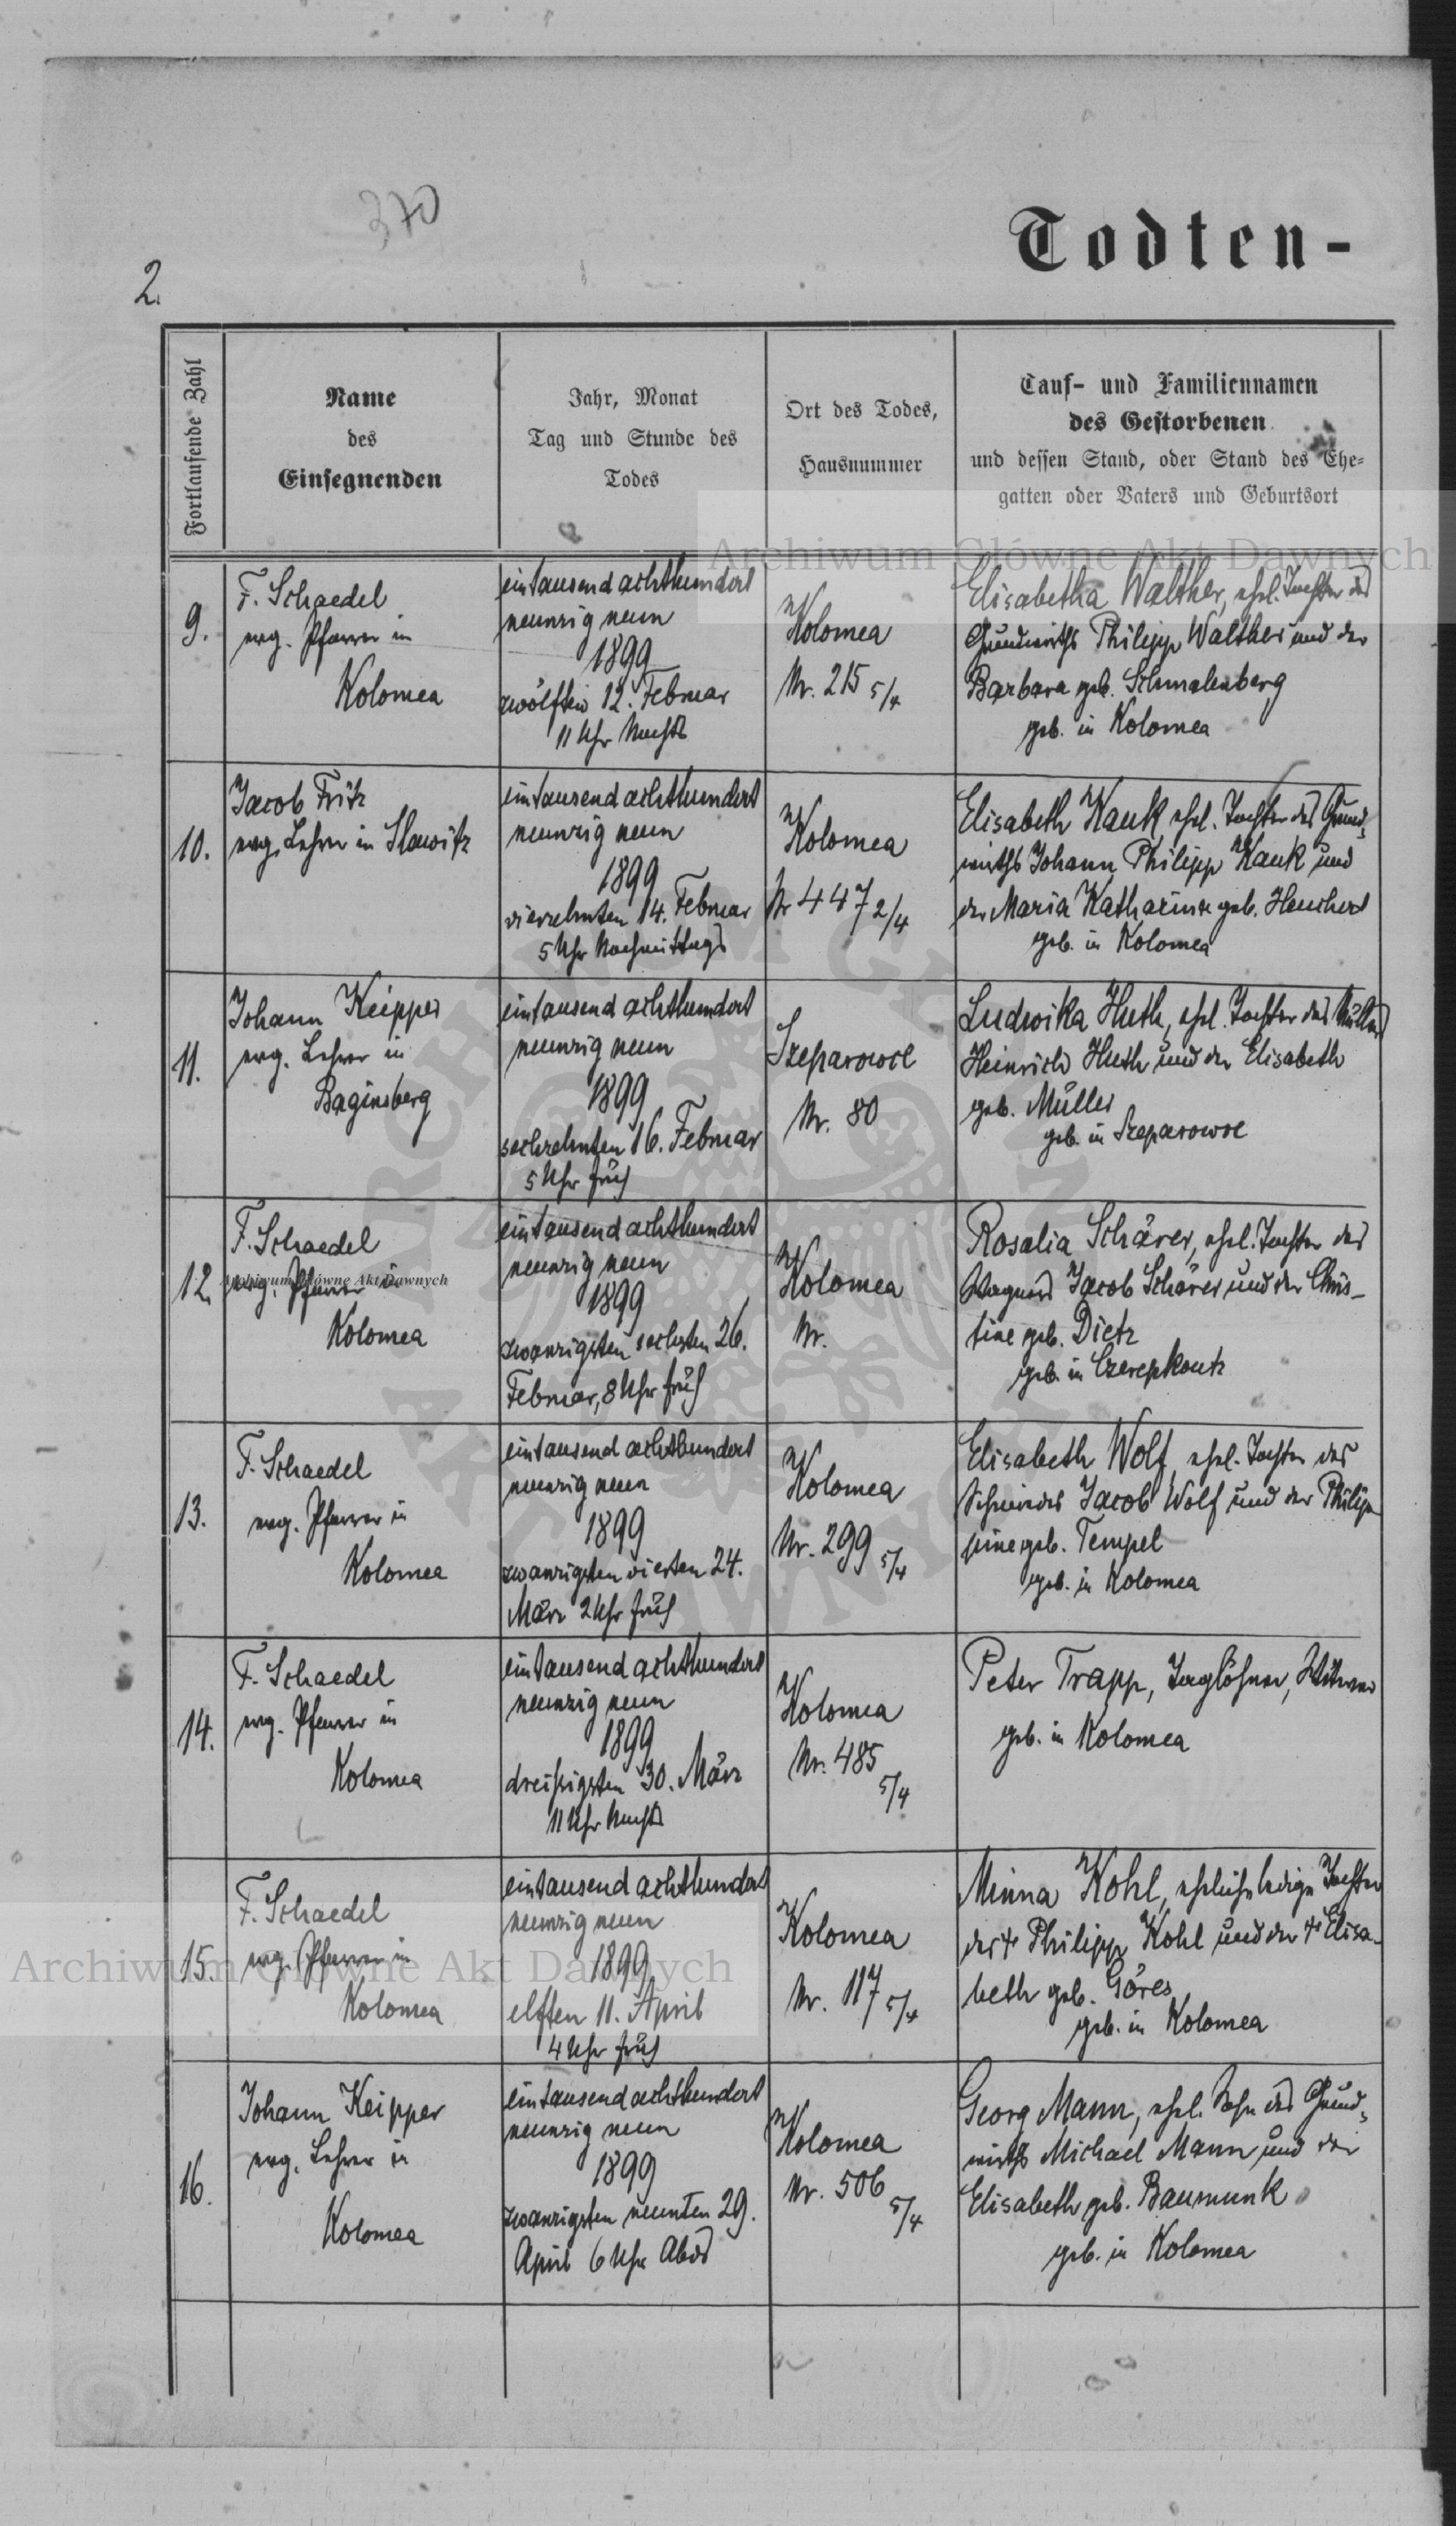 370
2.
Todten-
Fortlaufende Zahl
Name
des
Einsegnenden
Jahr, Monat
Tag und Stunde des
Todes
Ort des Todes,
Hausnummer
Tauf- und Familiennamen
des Gestorbenen
und dessen Stand, oder Stand des Ehe-
gatten oder Vaters und Geburtsort
Archiwum Główne Akt Dawnych
9.
F. Schaedel
evg. Pfarrer in
Kolomea
eintausend achthundert
neunzig neun
1899
zwölften 12. Februar
11 Uhr Nachts
Kolomea
Nr. 215 5/4
Elisabetha Walther, ehel. Tochter des
Grundwirths Philipp Walther und der
Barbara geb. Schmalenberg
geb. in Kolomea
10.
Jacob Fritz
evg. Lehrer in Slawitz
eintausend achthundert
neunzig neun
1899
vierzehnten 14. Februar
5 Uhr Nachmittags
Kolomea
Nr 447 2/4
Elisabeth Kauk, ehel. Tochter des Grund-
wirths Johann Philipp Kauk und
der Maria Katharina geb. Henchert
geb. in Kolomea
11.
Johann Keipper
evg. Lehrer in
Baginsberg
eintausend achthundert
neunzig neun
1899
sechzehnten 16. Februar
5 Uhr früh
Szeparowce
Nr. 80
Ludwika Huth, ehel. Tochter des Müllers
Heinrich Huth und der Elisabeth
geb. Müller
geb. in Szeparowce
12.
F. Schaedel
evg. Pfarrer in
Kolomea
Archiwum Główne Akt Dawnych
eintausend achthundert
neunzig neun
1899
zwanzigsten sechsten 26.
Februar, 8 Uhr früh
Kolomea
Nr.
Rosalia Schärer, ehel. Tochter des
Wagners Jacob Schärer und der Chris-
tine geb. Dietz
geb. in Czerepkoutz
13.
F. Schaedel
evg. Pfarrer in
Kolomea
eintausend achthundert
neunzig neun
1899
zwanzigsten vierten 24.
März 2 Uhr früh
Kolomea
Nr. 299 5/4
Elisabeth Wolf, ehel. Tochter des
Schmiedes Jacob Wolf und der Philip-
pine geb. Tempel
geb. in Kolomea
14.
F. Schaedel
evg. Pfarrer in
Kolomea
eintausend achthundert
neunzig neun
1899
dreißigsten 30. März
11 Uhr Nachts
Kolomea
Nr. 485
5/4
Peter Trapp, Taglöhner, Witwer
geb. in Kolomea
15.
F. Schaedel
evg. Pfarrer in
Kolomea
eintausend achthundert
neunzig neun
1899
elften 11. April
4 Uhr früh
Kolomea
Nr. 117 5/4
Minna Kohl, eheliche ledige Tochter
des + Philipp Kohl und der + Elisa-
beth geb. Göres
geb. in Kolomea
Archiwum Główne Akt Dawnych
16.
Johann Keipper
evg. Lehrer in
Kolomea
eintausend achthundert
neunzig neun
1899
zwanzigsten neunten 29.
April 6 Uhr Abds
Kolomea
Nr. 506
5/4
Georg Mann, ehel. Sohn des Grund-
wirths Michael Mann und der
Elisabeth geb. Baumunk
geb. in Kolomea